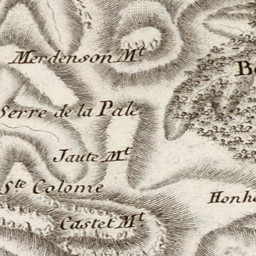 Merdenson Mt.
Serre de la Pale
Jaute Mt.
Ste Colome
Castet Mt.